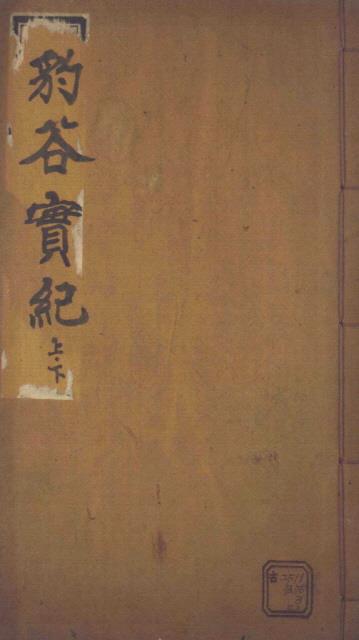 豹谷實紀
上·下
古